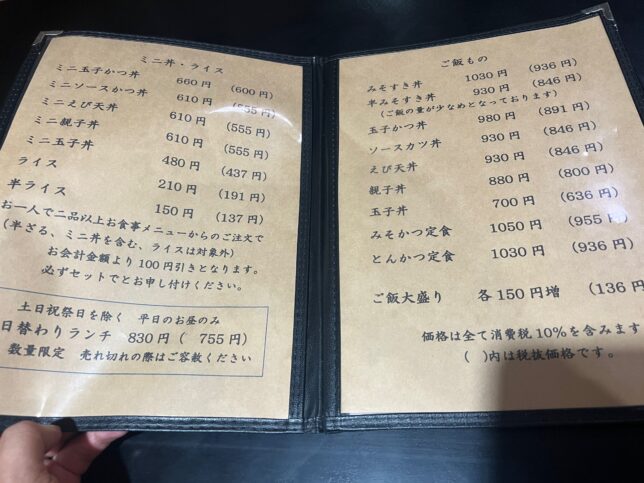 ミニ丼・ライス
ミニ玉子かつ丼 660円 (600円)
ミニソースかつ丼 610円 (555円)
ミニえび天丼 610円 (555円)
ミニ親子丼 610円 (555円)
ミニ玉子丼 480円 (437円)
ライス 210円 (191円)
半ライス 150円 (137円)
お一人で二品以上お食事メニューからのご注文で
(半ざる、ミニ丼を含む、ライスは対象外)
お会計金額より100円引きとなります。
必ずセットでとお申し付けください。
土日祝祭日を除く 平日のお昼のみ
日替わりランチ 830円( 755円)
数量限定 売れ切れの際はご容赦ください
ご飯もの
みそすき丼 1030円 (936円)
半みそすき丼 930円 (846円)
(ご飯の量が少なめとなっております)
玉子かつ丼 980円 (891円)
ソースカツ丼 930円 (846円)
えび天丼 930円 (846円)
親子丼 880円 (800円)
玉子丼 700円 (636円)
みそかつ定食 1050円 (955円)
とんかつ定食 1030円 (936円)
ご飯大盛り 各150円増 (136円
価格は全て消費税10%を含みます
( )内は税抜価格です。